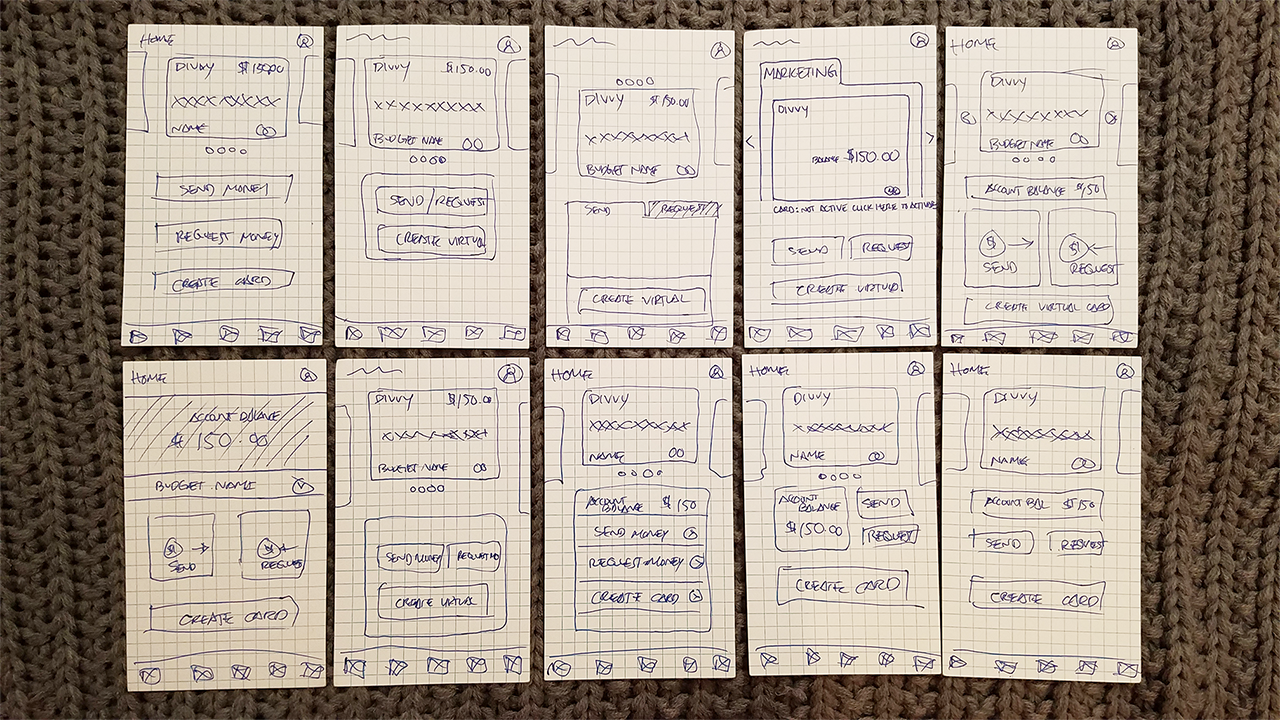 HOME
DIVVY $150.00
XXXX XXXXXX
NAME
SEND MONEY
REQUEST MONEY
CREATE CARD
DIVVY $150.00
XXXXXXXXXX
BUDGET NAME
SEND / REQUEST
CREATE VIRTUAL
DIVVY $150.00
XXXXXXXXX
BUDGET NAME
SEND REQUEST
CREATE VIRTUAL
MARKETING
DIVVY
BALANCE $150.00
< >
CARD: NOT ACTIVE CLICK HERE TO ACTIVATE
SEND REQUEST
CREATE VIRTUAL
HOME
DIVVY
XXXXXXXX
BUDGET NAME
ACCOUNT BALANCE $150
$ $
SEND REQUEST
CREATE VIRTUAL CARD
HOME
ACCOUNT BALANCE
$150.00
BUDGET NAME
$ $
SEND REQUEST
CREATE CARD
DIVVY $150.00
XXXXXXXXX
BUDGET NAME
SEND MONEY REQUEST MO
CREATE VIRTUAL
HOME
DIVVY
XXXXXXXXXX
NAME
ACCOUNT BALANCE $150
SEND MONEY
REQUEST MONEY
CREATE CARD
HOME
DIVVY
XXXXXXXXX
NAME
ACCOUNT BALANCE
$150.00
SEND
REQUEST
CREATE CARD
HOME
DIVVY
XXXXXXXXX
NAME
ACCOUNT BAL $150
SEND REQUEST
CREATE CARD